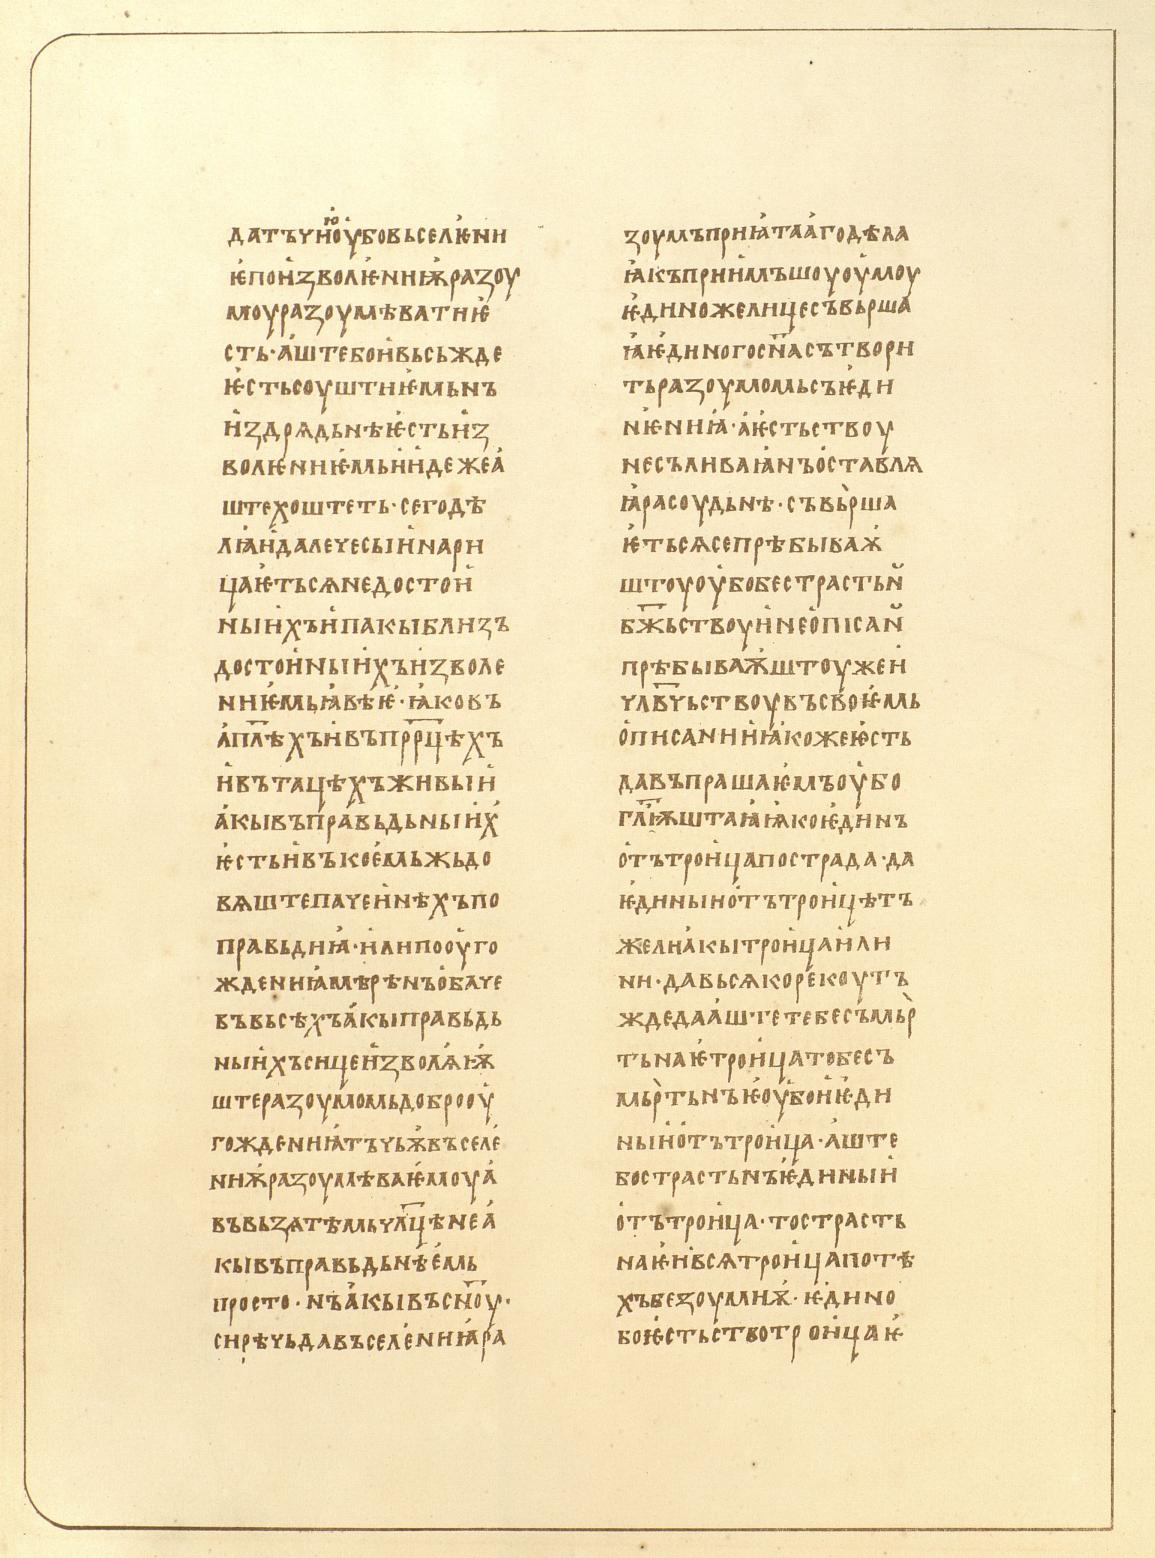 датъчнⷪ҇ю оубовьселѥни
ѥпоизволѥниѭразоу
моуразоумѣватиѥ
сть·аштебоивьсьжде
ѥстьсоуштиѥмьнъ
издрѧдьнѣѥстьиз
волѥниѥмьиидежеа
штехоштеть·сегодѣ
лꙗидалечесыинари
цаѥтьсѧнедостои
ныихъипакыблизъ
достоиныихъизволе
ниѥмьꙗвѣѥ·ꙗковъ
ап҃лѣхъивъпр҃рцѣхъ
ивътацѣхъживыи
акывъправьдьныих
ѥстьивъкоемьжьдо
вѧштепачеинѣхъпо
правьдиꙗ·илипооуго
ждениꙗмѣрѣнъобаче
въвьсѣхъакыправьдь
ныихъсицеизволѧѭ
штеразоумомьдоброоу
гождениꙗтъчьѭвъселе
ниѭразоумѣваѥмоуа
въвьзѧтѣмьчл҃цѣнеа
кывъправьдьнѣемь
просто·нъакывъсн҃оу·
сирѣчьдавъселениꙗра
зоумъприꙗтаагодѣла
ꙗкъприимъшоуоумоу
ѥдиножелицесъвьрша
ꙗѥдиногосн҃асътвори
тьразоумомьсъѥди
нѥниꙗ·аѥстьствоу
несъливаꙗнъоставлѧ
ꙗрасоудьнѣ·съвьрша
ѥтьсѧсепрѣбываѭ
штоуоубобестрастьн
бж҃ьствоуинеописан
прѣбываѭштоужеи
члв҃чьствоувъсвоѥмь
описаниꙗкожеѥсть
давъпрашаѥмъоубо
гл҃ѭштаꙗꙗкоѥдинъ
отътроицапострада·да
ѥдиныиотътроицѣтъ
желиакытроицаили
ни·давьсѧкорекоутъ
ждедааштетебесъмьр
тьнаѥтроицатобесъ
мьртьнъѥоубоиѥди
ныиотътроица·аште
бострастьнъѥдиныи
отътроица·тострасть
наѥивсѧтроицапотѣ
хъбезоумиѭ·ѥдино
боѥстьствотроицаѥ